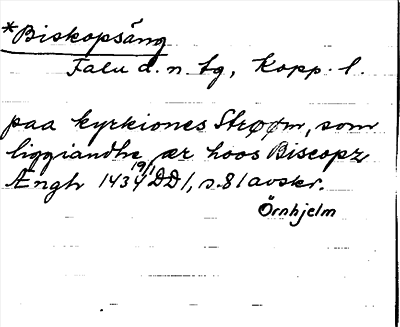 *Biskopsäng
Falu d. n. tg, Kopp. l.
paa kyrkiones Strøøm, som
liggiandhe ær hoos Biscopz
Ængh 1434 19/1 DD1, s. 81 avskr.
Örnhjelm